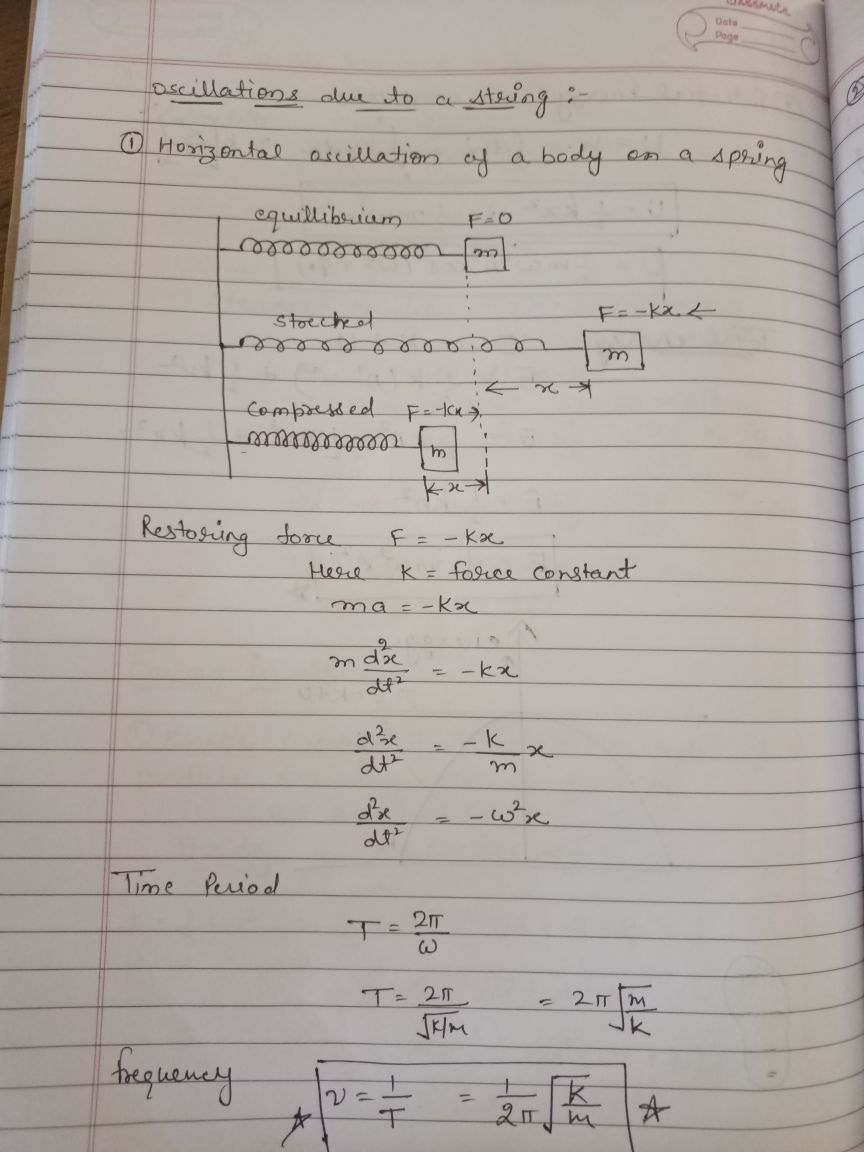 classmate
Date
Page
oscillations due to a string :-
① Horizontal oscillation of a body on a spring
equillibrium F=0
m
streched F = -Kx ←
m
← x →
Compressed F = -Kx →
m
← x →
Restoring force F = - Kx
Here K = force constant
ma = -Kx
m d²x/dt² = -Kx
d²x/dt² = -K/m x
d²x/dt² = - ω²x
Time Period
T = 2π/ω
T = 2π/√K/m = 2π √m/K
frequency
ν = 1/T = 1/2π √K/m